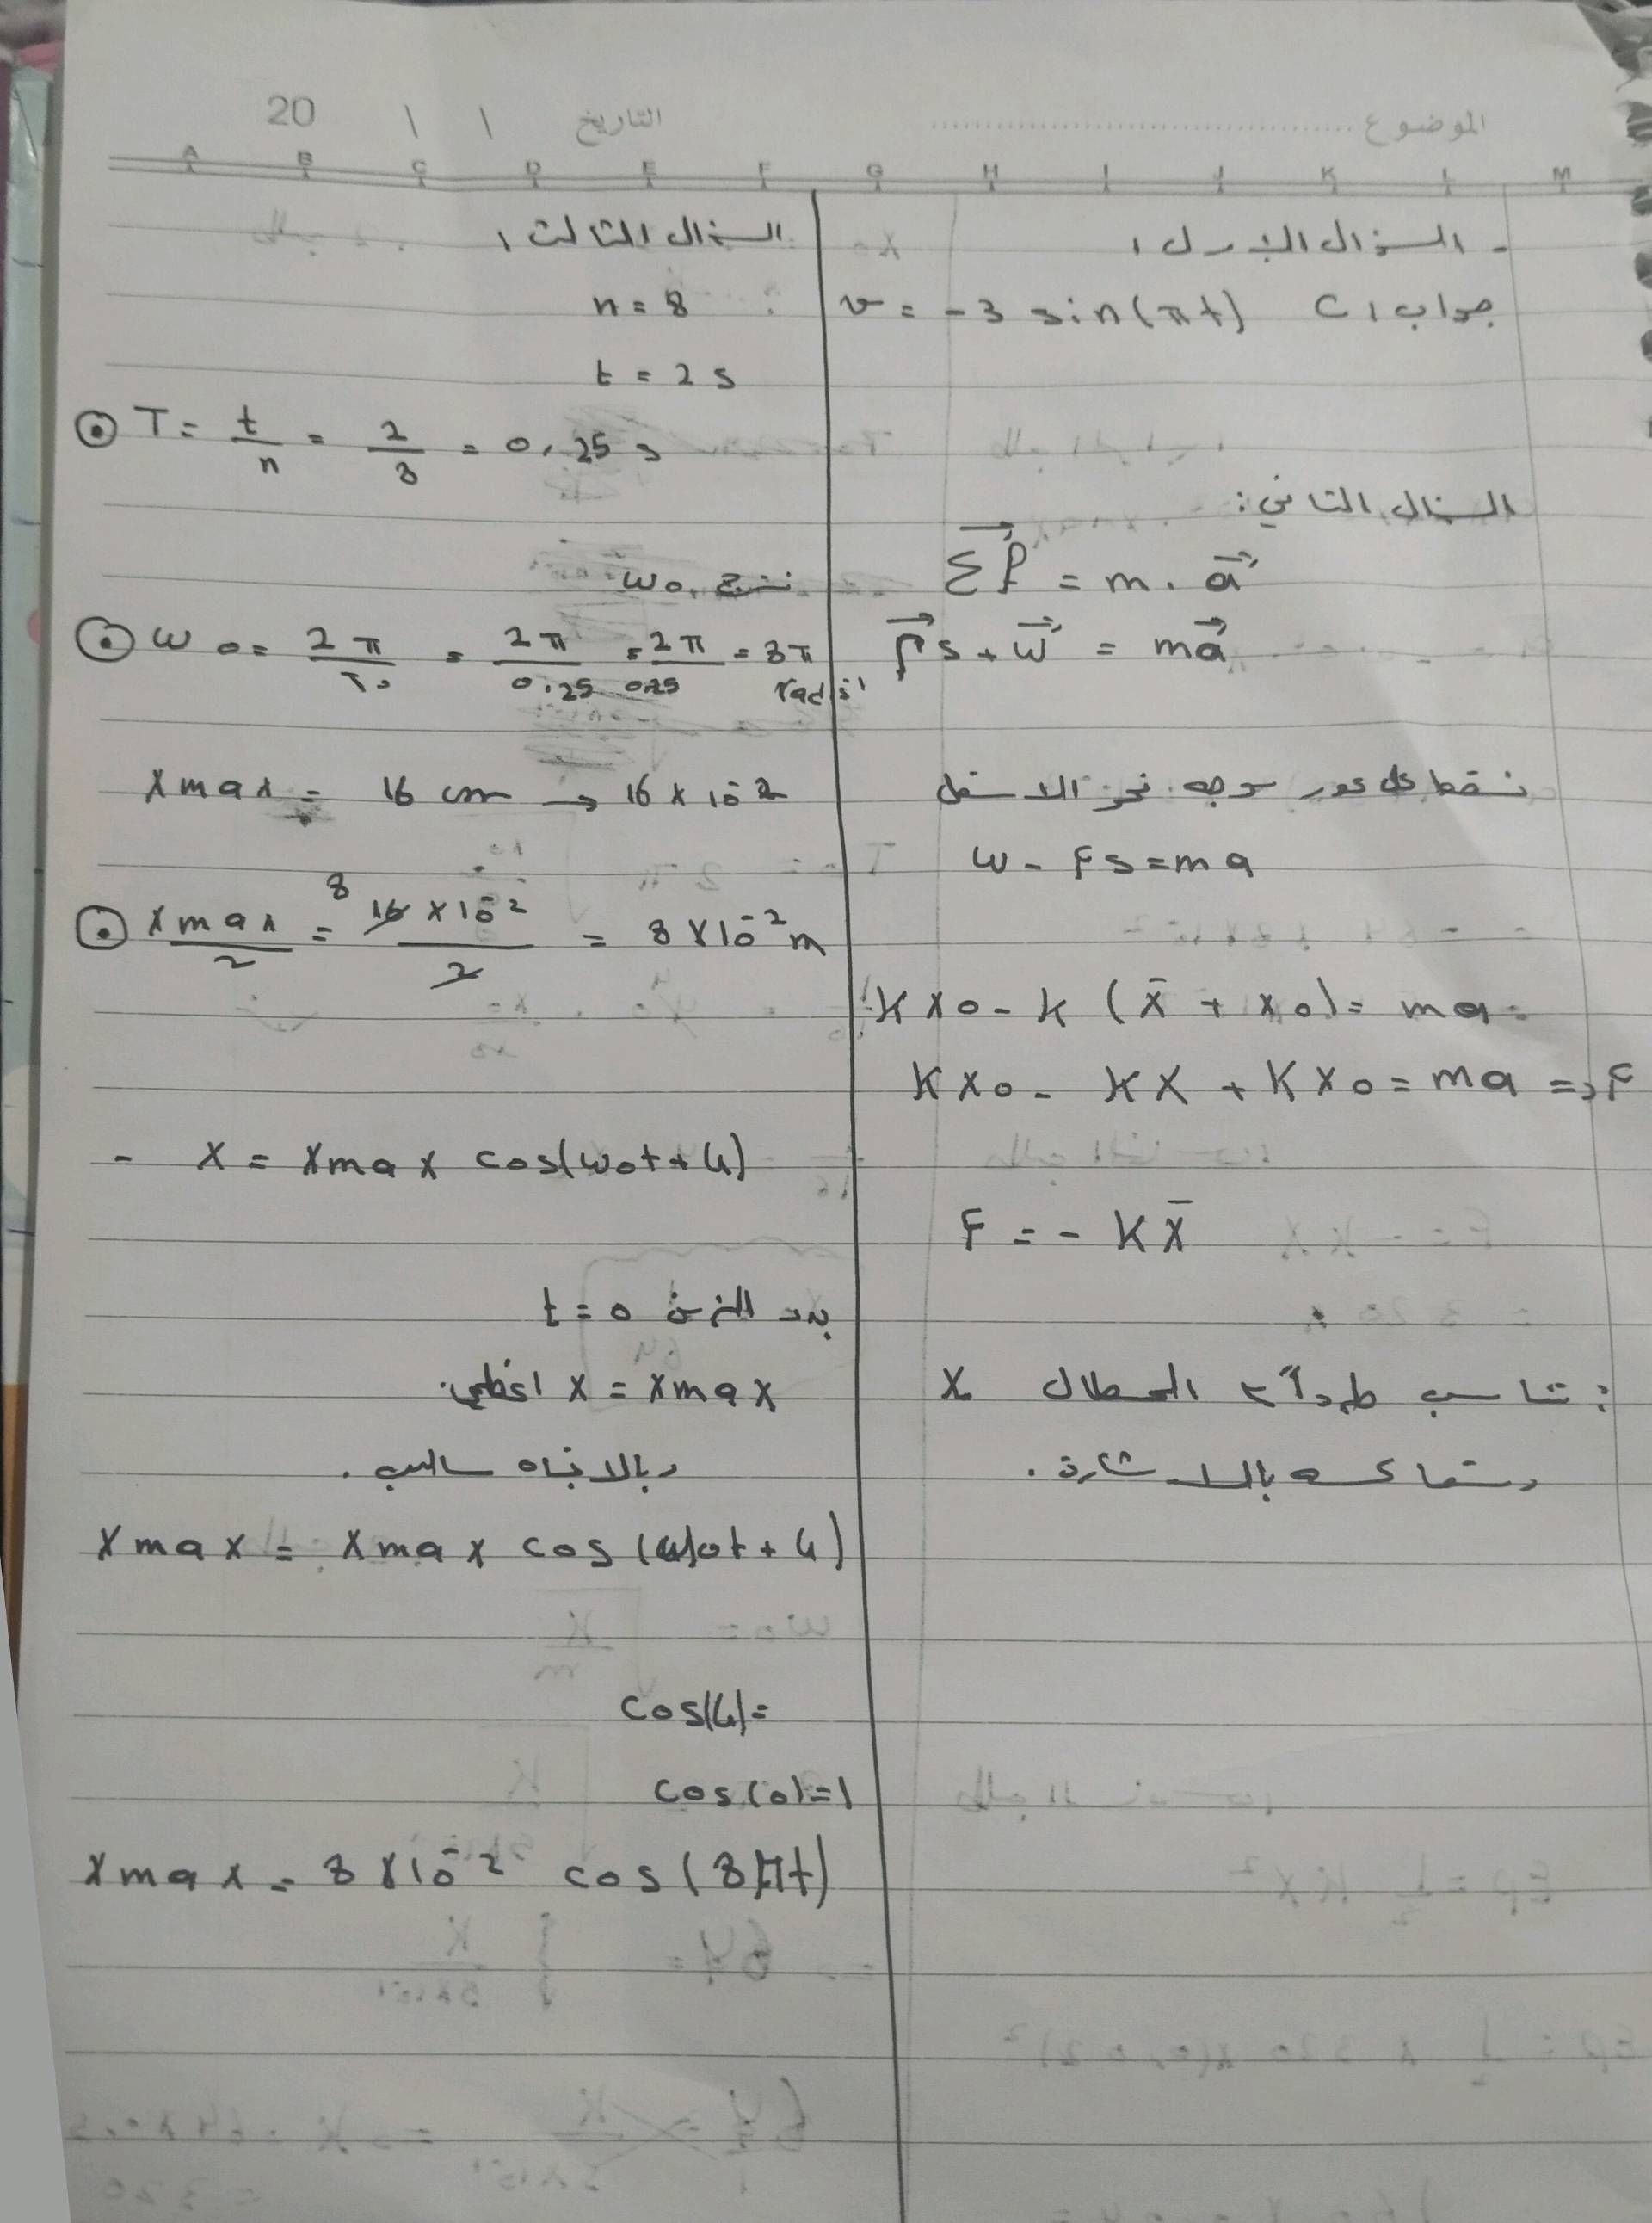 الموضوع
التاريخ \ \ 20
A B C D E F G H I J K L M
- السؤال الاول :
جواب C : v = -3 sin(πt)
السؤال الثاني:
ΣF = m . a
Fs + w = ma
نسقط على محور موجه نحو الاسفل
w - Fs = ma
K x0 - k (x̄ + x0) = ma
K x0 - K X + K x0 = ma => F
F = - K x̄
: تناسب طرداً مع المطال X
وتعاكسه بالاشارة .
السؤال الثالث :
n = 8
t = 2 s
T = t/n = 2/8 = 0,25 s
w0
w0 = 2π/T0 = 2π/0,25 = 2π/0,25 = 8π rad.s⁻¹
Xmax = 16 cm → 16 x 10⁻²
Xmax/2 = 16 x 10⁻²/2 = 8 x 10⁻² m
8
- X = Xmax cos(w0t + φ)
بدء الزمن t = 0
X = Xmax اعظمي.
وبالاتجاه سالب .
Xmax = Xmax cos(w0t + φ)
cos(φ) =
cos(0) = 1
Xmax = 8 x 10⁻² cos(8πt)